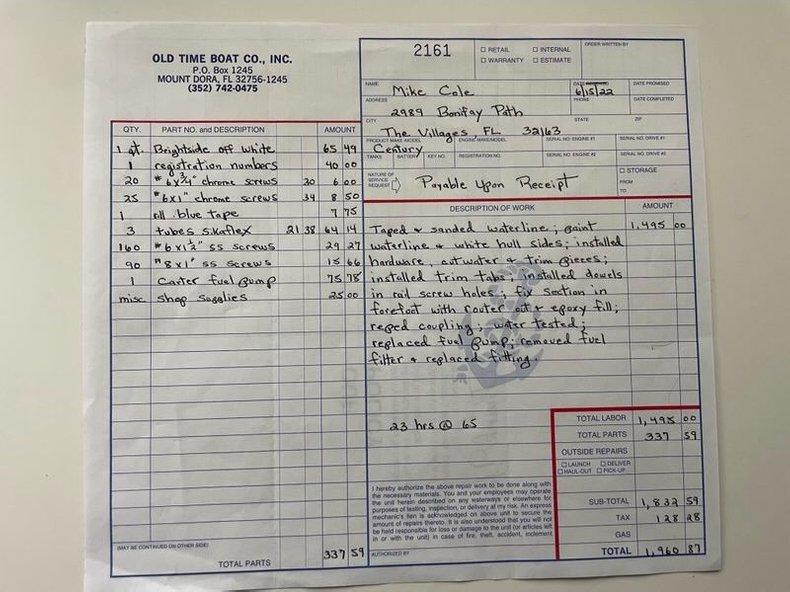 OLD TIME BOAT CO., INC.
P.O. Box 1245
MOUNT DORA, FL 32756-1245
(352) 742-0475
2161
☐ RETAIL ☐ INTERNAL
☐ WARRANTY ☐ ESTIMATE
ORDER WRITTEN BY
NAME Mike Cole
DATE 6/15/22
DATE PROMISED
ADDRESS 2989 Bonifay Path
PHONE
DATE COMPLETED
CITY The Villages, FL 32163
STATE
ZIP
PRODUCT MAKE/MODEL Century
ENGINE MAKE/MODEL
SERIAL NO. ENGINE #1
SERIAL NO. DRIVE #1
TANKS BATTERY KEY NO. REGISTRATION NO. SERIAL NO. ENGINE #2 SERIAL NO. DRIVE #2
NATURE OF SERVICE REQUEST Payable Upon Receipt
☐ STORAGE
FROM
TO
QTY. PART NO. and DESCRIPTION AMOUNT
1 qt. Brightside off white 65 49
1 registration numbers 40 00
20 #6x3/4" chrome screws 30 6 00
25 #6x1" chrome screws 34 8 50
1 roll blue tape 7 75
3 tubes sikaflex 21 38 64 14
160 #6x1½" SS screws 29 27
90 #8x1" SS screws 15 66
1 Carter fuel pump 75 78
misc. shop supplies 25 00
(MAY BE CONTINUED ON OTHER SIDE)
TOTAL PARTS 337 59
DESCRIPTION OF WORK AMOUNT
Taped & sanded waterline; paint 1,495 00
waterline & white hull sides; installed
hardware, cutwater & trim pieces;
installed trim tabs; installed dowels
in rail screw holes; fix section in
forefoot with router out & epoxy fill;
coupling; water tested;
replaced fuel pump; removed fuel
filter & replaced fitting.
23 hrs @ 65
I hereby authorize the above repair work to be done along with
the necessary materials. You and your employees may operate
the unit herein described on any waterways or elsewhere for
purposes of testing, inspection, or delivery at my risk. An express
mechanic's lien is acknowledged on above unit to secure the
amount of repairs thereto. It is also understood that you will not
be held responsible for loss or damage to the unit (or articles left
in or with the unit) in case of fire, theft, accident, inclement
AUTHORIZED BY
TOTAL LABOR 1,495 00
TOTAL PARTS 337 59
OUTSIDE REPAIRS
☐ LAUNCH ☐ DELIVER
☐ HAUL-OUT ☐ PICK-UP
SUB-TOTAL 1,832 59
TAX 128 28
GAS
TOTAL 1,960 87